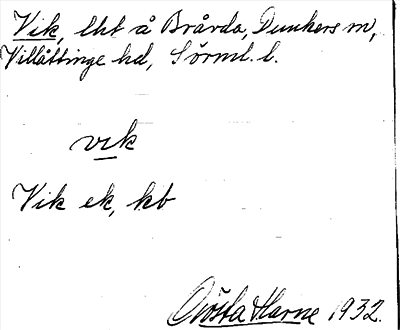 Vik, lht å Brårda, Dunkers sn,
Villåttinge hd, Sörml. l.
vik
Vik ek, kb
Gösta Harne 1932.